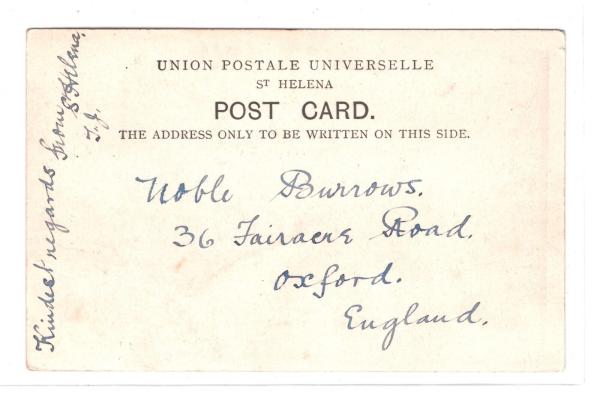 UNION POSTALE UNIVERSELLE
ST HELENA
POST CARD.
THE ADDRESS ONLY TO BE WRITTEN ON THIS SIDE.
Noble Burrows.
36 Fairacre Road.
Oxford.
England.
Kindest regards from
St Helena,
T.J.